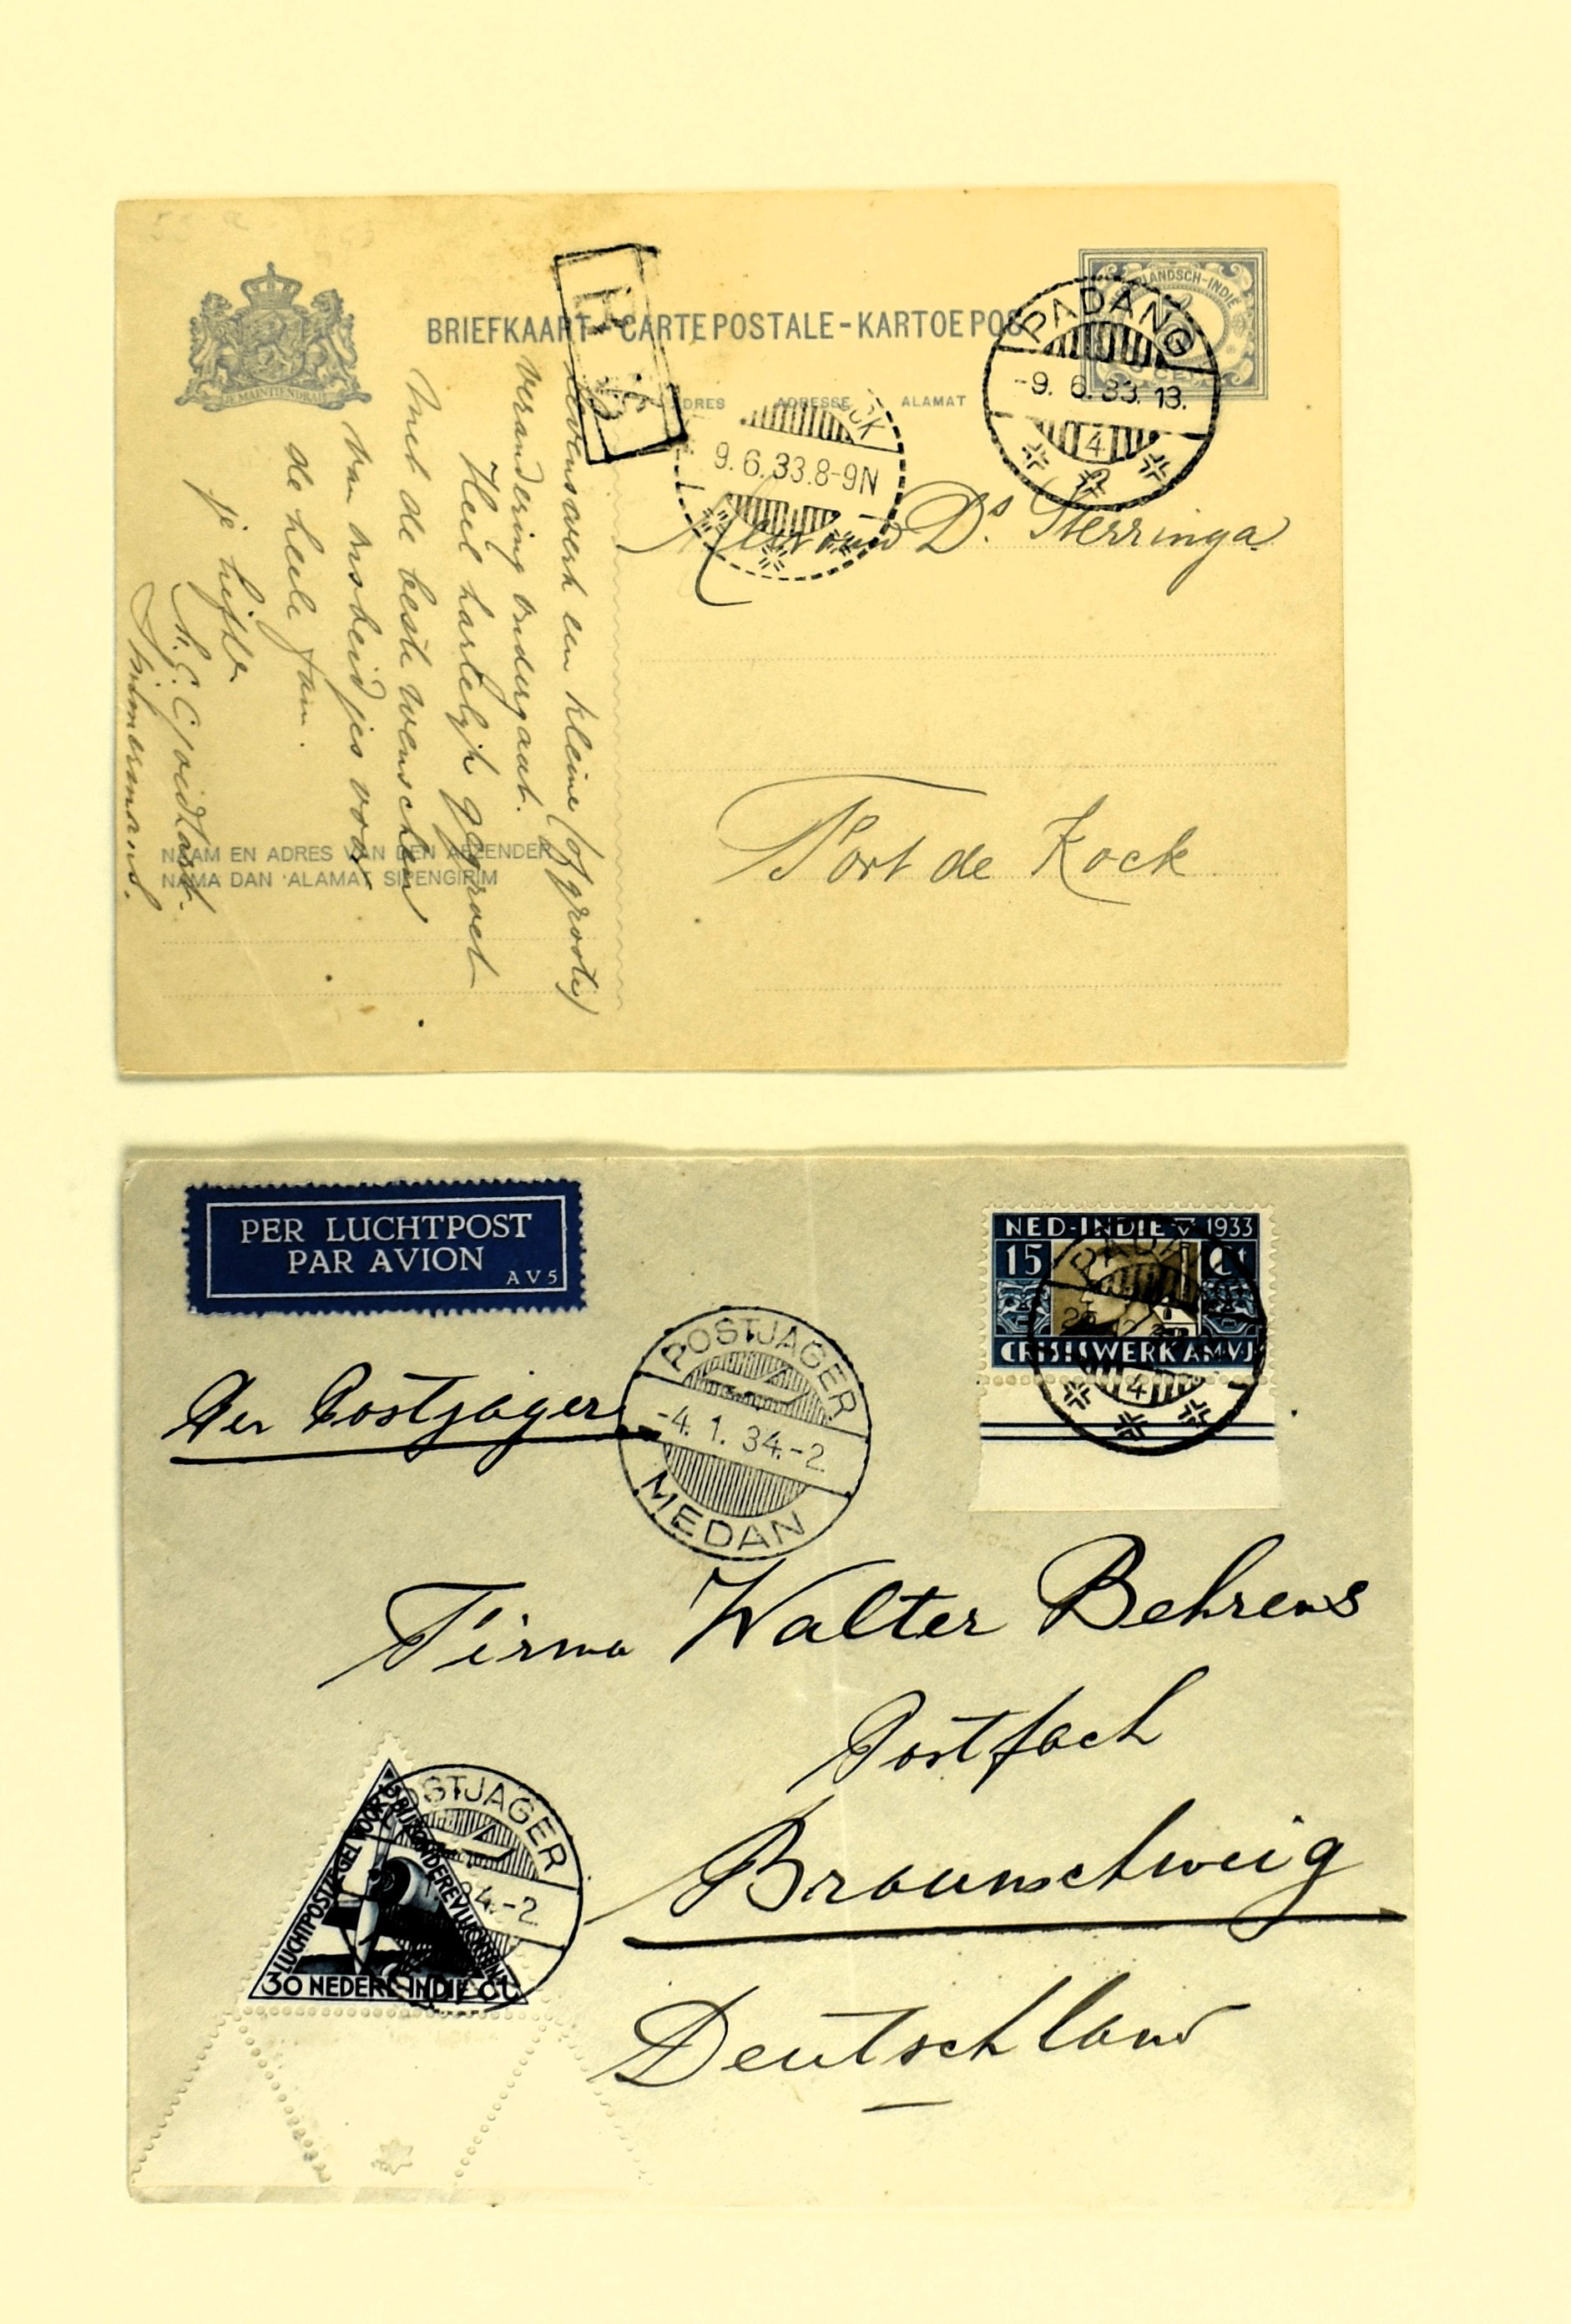 BRIEFKAART-CARTE POSTALE-KARTOE POS
NEDERLANDSCH-INDIË
JE MAINTIENDRAI
PADANG
-9. 6.33.13.
4
ADRES ADRESSE ALAMAT
CK
9.6.33.8-9N
Mevrouw Ds. Sterringa
Fort de Kock
levenswerk een kleine (of groote)
verandering ondergaat.
Heel hartelijk gegroet
met de beste wenschen
van ons beidjes voor
de heele fam.
je liefh.
Timmermans.
NAAM EN ADRES VAN DEN AFZENDER
NAMA DAN ALAMAT SIPENGIRIM
PER LUCHTPOST
PAR AVION
AV5
NED-INDIE 1933
15 Ct
CRISISWERK AMVJ
PADANG
4
Per Postjager
POSTJAGER
-4. 1. 34.-2.
MEDAN
Firma Walter Behrens
Postfach
Braunschweig
Deutschland
LUCHTPOSTZEGEL VOOR BIJZONDERE VLUCHTEN
30 NEDERL INDIE ct
POSTJAGER
34.-2.